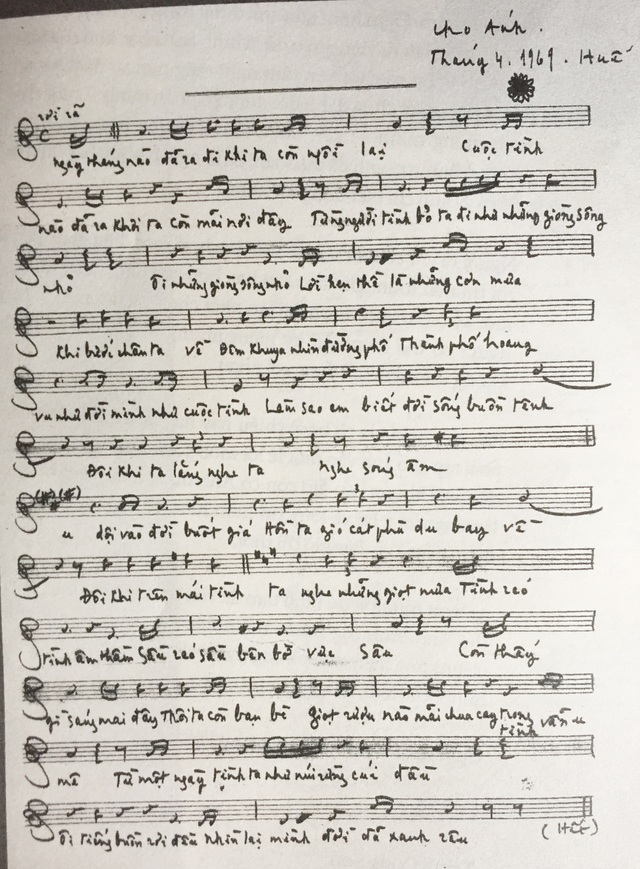 cho Anh.
Tháng 4. 1969. Huế
rời rã
ngày tháng nào đã ra đi khi ta còn ngồi lại Cuộc tình
nào đã ra khơi ta còn mãi nơi đây Từng người tình bỏ ta đi như những giòng sông
nhỏ Ôi những giòng sông nhỏ Lời hẹn thề là những cơn mưa
Khi bước chân ta về Đêm khuya nhìn đường phố Thành phố hoang
vu như đời mình như cuộc tình Làm sao em biết đời sống buồn tênh
Đôi khi ta lắng nghe ta nghe sóng âm
u dội vào đời buốt giá Hồn ta gió cát phù du bay về
Đôi khi trên mái tình ta nghe những giọt mưa Tình réo
tình âm thầm Sầu réo sầu bên bờ vực sâu Còn thấy
gì sáng mai đây Thôi ta còn bạn bè giọt rượu nào mãi chua cay trong tình vẫn u
mê Từ một ngày tình ta như núi rừng cúi đầu
Ôi tiếng buồn rơi đều nhìn lại mình đời đã xanh rêu
(Hết)